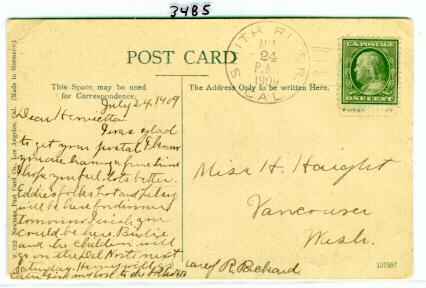 3485
POST CARD
This Space may be used
for Correspondence.
The Address Only to be written Here.
SMITH RIVER,
JUL
24
P.M.
1909
CAL.
U.S. POSTAGE
ONE CENT
V 1253 Newman Post Card Co., Los Angeles, Cal. (Made in Germany.)
July 24 1909
Dear Henrietta
I was glad
to get your postal
you are having a fine time
I hope you feel lots better.
Eddie's folks
will be here for dinner
tomorrow. I wish you
could be here. Birdie
and the children will
go on the Del Norte next
Saturday. Henry
Miss H. Haight
Vancouver
Wash.
care of R. Packard
157557